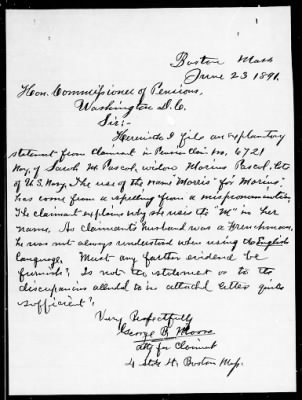 Boston Mass
June 23 1891.
Hon. Commissioner of Pensions,
Washington D.C.
Sir:-
Herewith I file an explanatory
statement from claimant in Pension Claim No. 6721
Navy, of Sarah M. Pascal, widow Marius Pascal, late
of U.S. Navy. The use of the name "Morris" for Marius
has come from a spelling from a mispronunciation.
The claimant explains why she uses the "M" in her
name. As claimants husband was a Frenchman,
he was not always understood when using the English
language. Must any farther evidence be
furnish? Is not the statement as to the
discrepancies alluded to in attach'd letter quite
sufficient?
Very Respectfully
George B. Moore
Atty for Claimant
4 State St. Boston Mass.